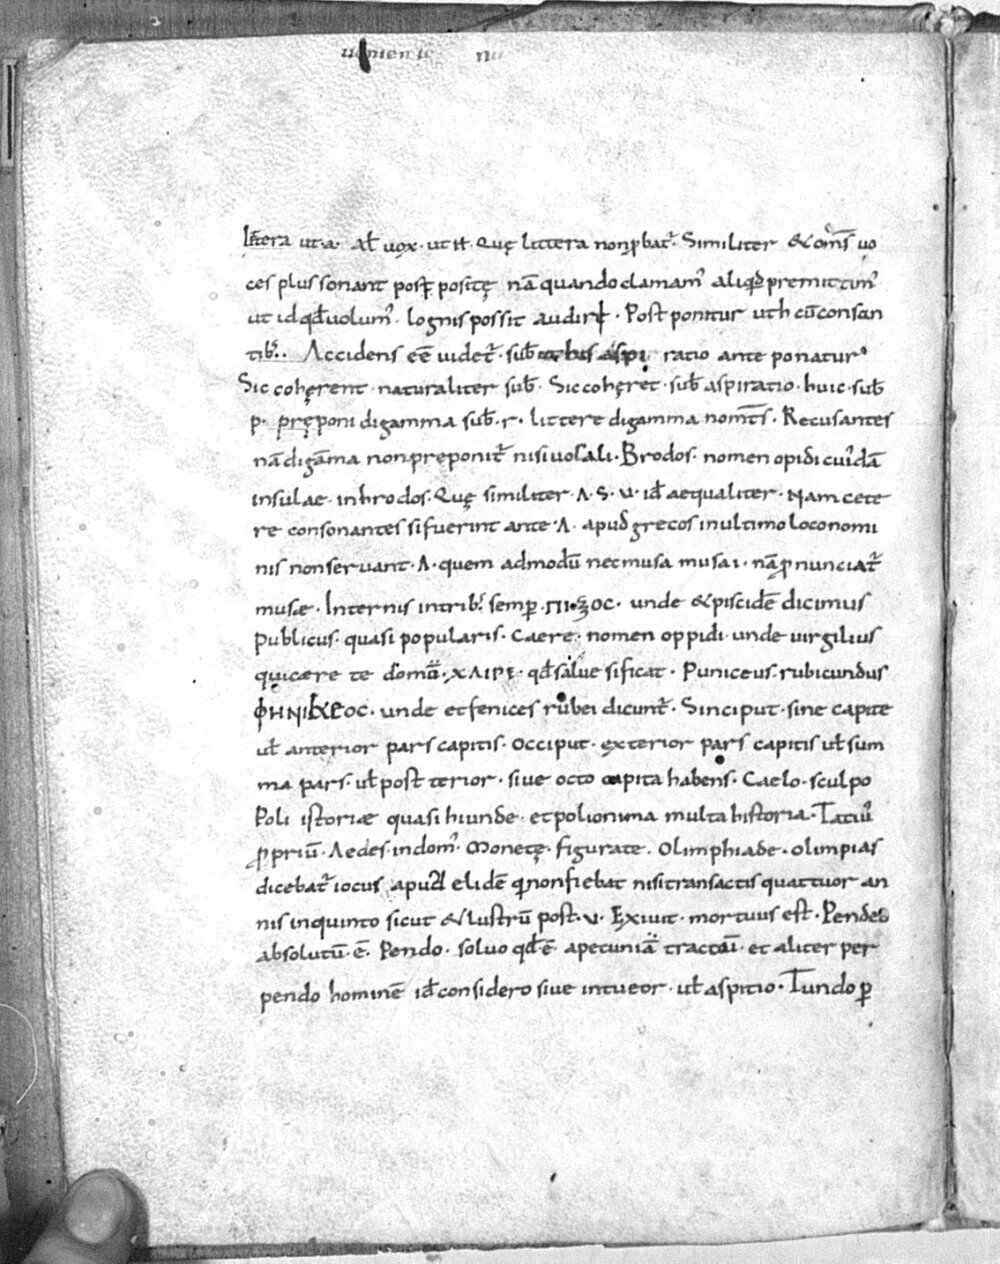 littera ut · a · ał uox · ut H · Quę littera non ꝓbat᷑ · Similiter &om̄s uo
ces plus sonant post̨ positę nā quando clamam᷒ aliqđ premittim᷒
ut id qđ uolum᷒ · longnis possit audiri · Post ponitur ut h cū conson
tib᷒ ·· Accidens eē uidet᷑ · sub̄ aspi ratio ante ponatur ·
Sic cohęrent · naturaliter sub̄ · Sic cohęret · sub̄ aspiratio · huic · sub̄
p · pręponi digamma sub̄ · r · littere digamma nom̄s · Recusantes
nā digāma non preponit᷑ nisi uocali · Brodos · nomen opidi cuīdā
insulae · inhrodos · Quę similiter · Λ · S · U · iđ aequaliter · Nam cete
re consonantes si fuerint ante · Λ · apud grecos in ultimo loco nomi
nis non seruant · Λ · quem admodū nec musa musai · nā ꝓnunciat᷑
musæ · Internis in trib᷒ semꝑ · ΠΙ·ΞΟC · unde & piscidē dicimus
Publicus · quasi popularis · Caere · nomen oppidi · unde uirgilius
qui cære te domū · ΧΛΙΡΕ · qđ salue sificat · Puniceus · rubicundus
ΦΗΝΙΚΕΟC · unde et fenices rubei dicunt᷑ · Sinciput · sine capite
uł anterior pars capitis · Occiput · exterior pars capitis uł sum
ma pars · uł post terior · siue octo capita habens · Caelo · sculpo
Poli istoriæ quasi hiunde · et polionima multa historia · Tatiū
ꝓpriū · Aedes · indom᷒ · Monetę · figurate · Olimphiade · olimpias
dicebat᷑ iocus apud elidē q̄ non fiebat nisi transactis quattuor an
nis in quinto sicut & lustrū post · U · Exiuit · mortuus est · Pendeo
absolutū · ē · Pendo · soluo qđ ē apecuniā tractū · et aliter per
pendo hominē iđ considero siue intueor · uł aspitio · Tundo ꝑ